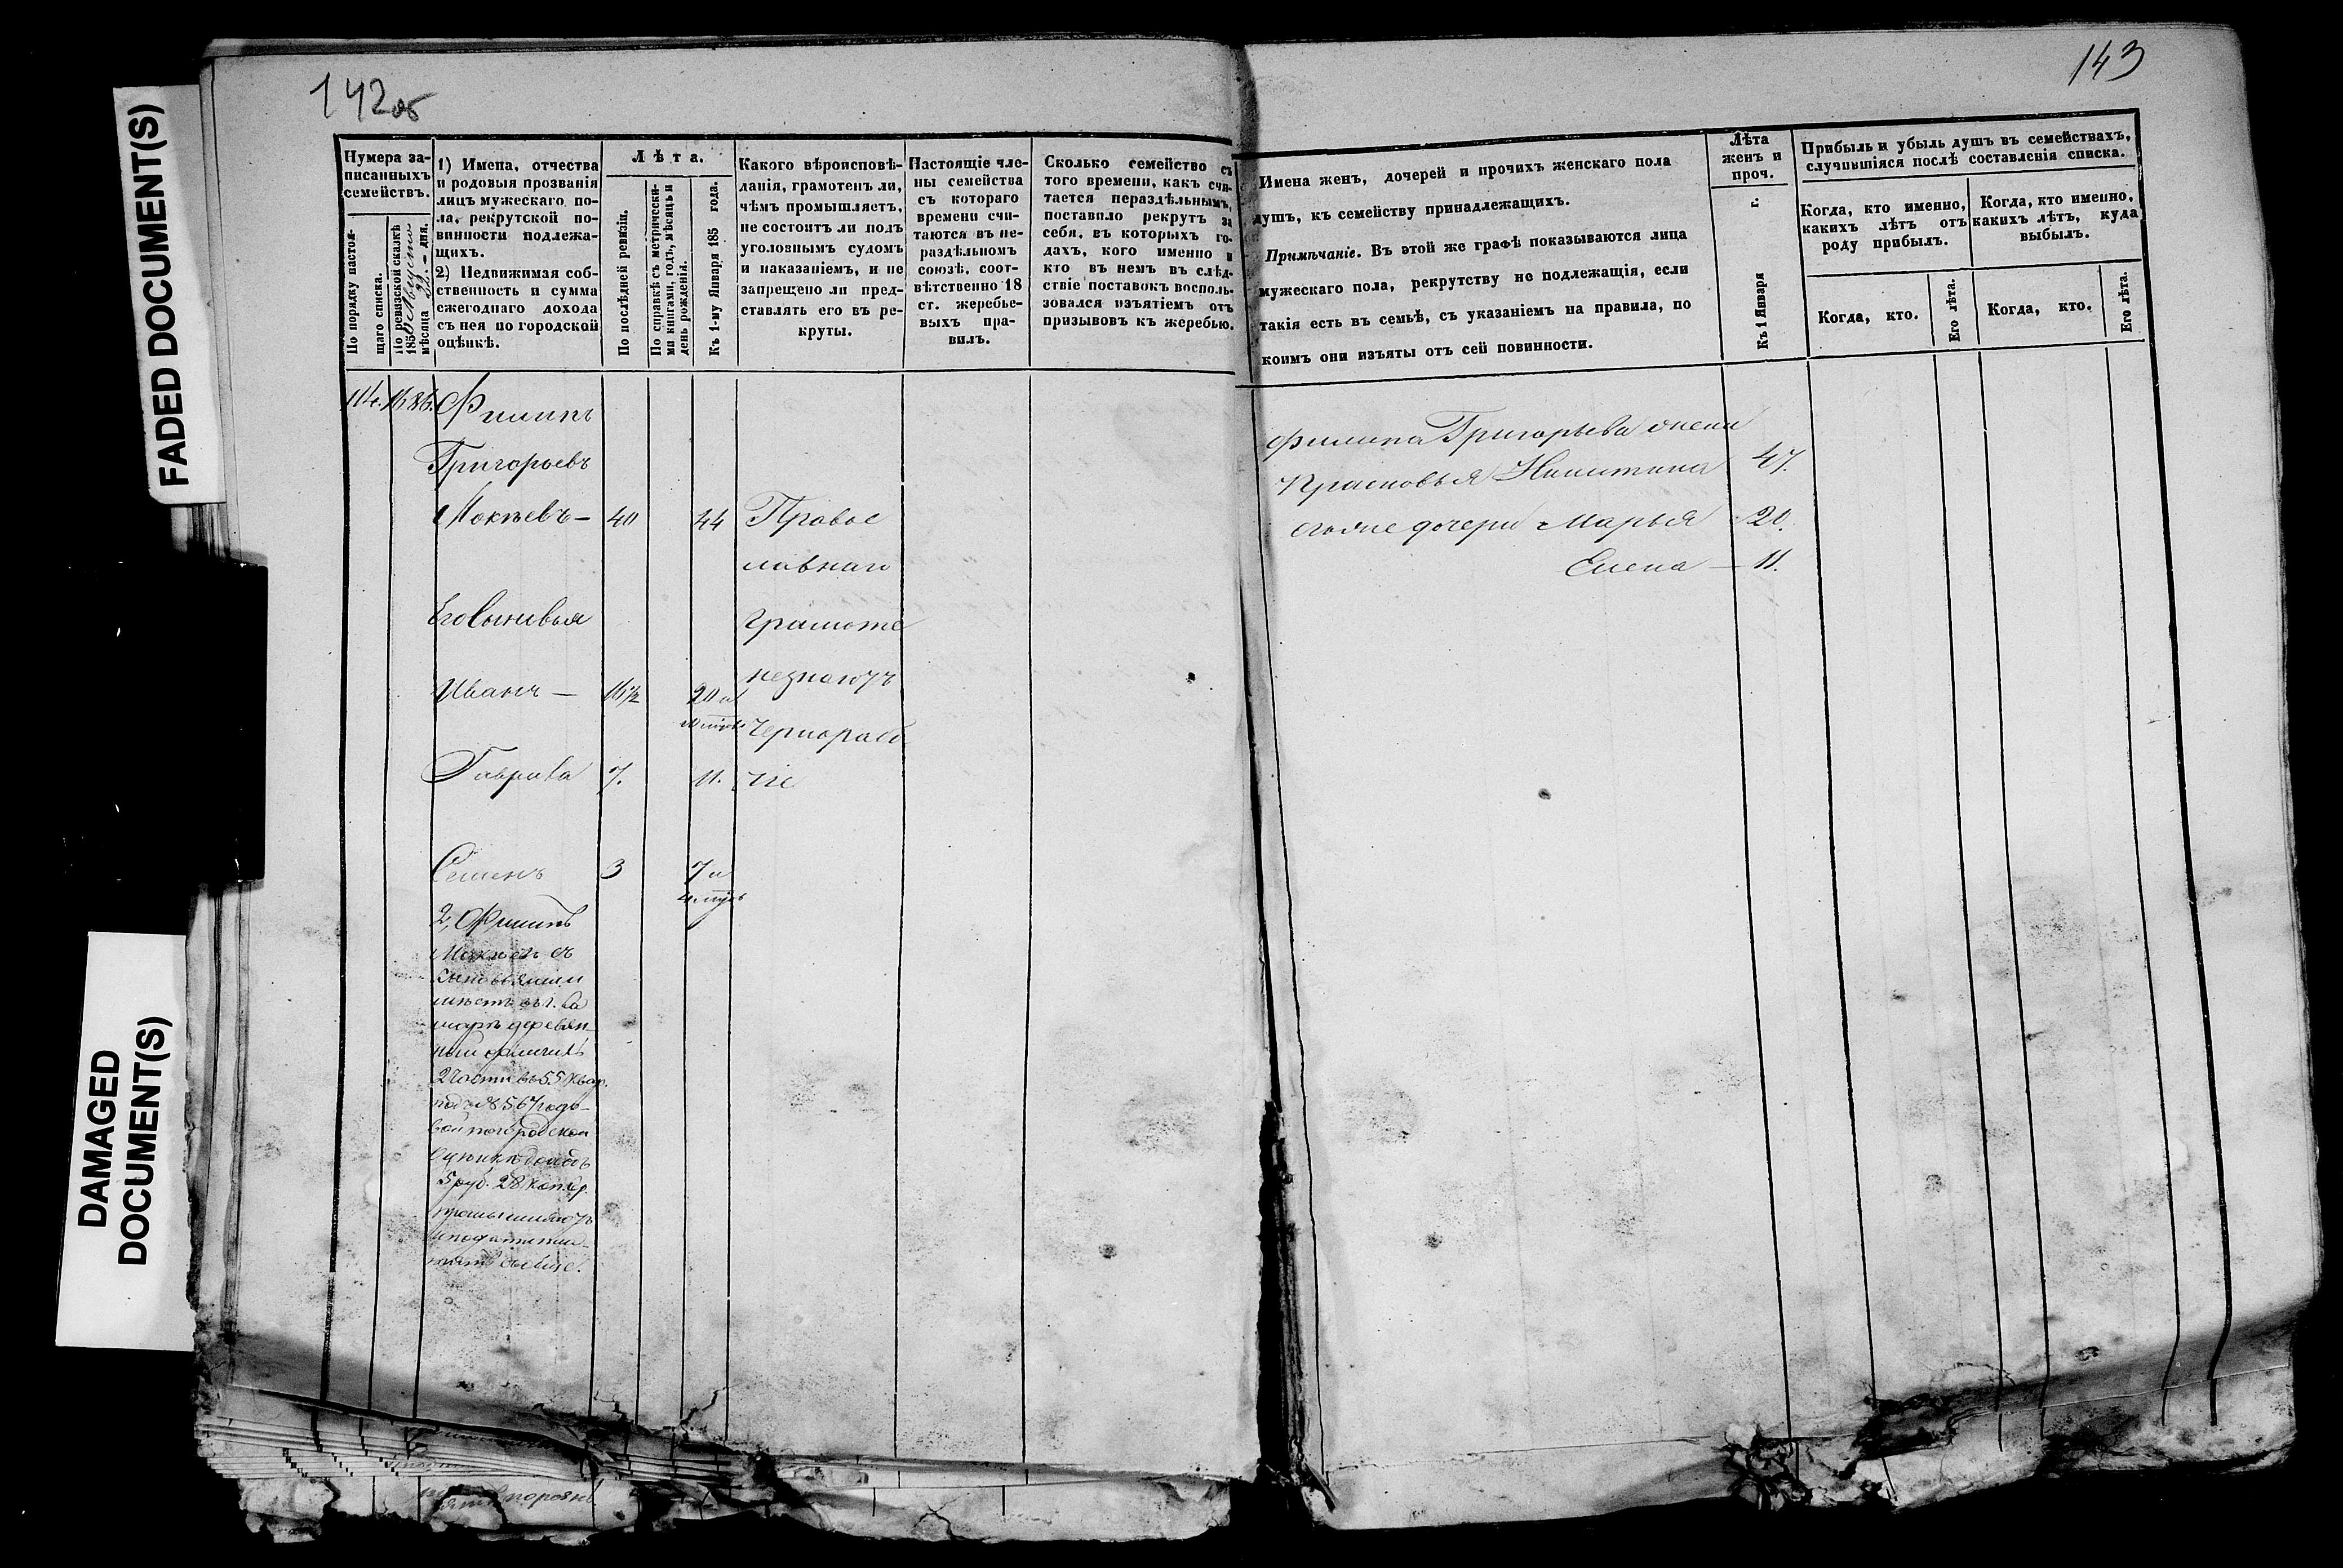 FADED DOCUMENT(S)
DAMAGED
DOCUMENT(S)
142об
Нумера за-
писанныхъ
семействъ.
По порядку настоя-
щаго списка.
По ревизской сказкѣ
185 Августа
мѣсяца 22 - дня.
1) Имена, отчества
и родовыя прозванія
лицъ мужескаго по-
ла, рекрутской по-
винности подлежа-
щихъ.
2) Недвижимая соб-
ственность и сумма
ежегоднаго дохода
съ нея по городской
оцѣнкѣ.
Лѣта.
По послѣдней ревизіи.
По справкѣ съ метрически-
ми книгами, годъ, мѣсяцъ и
день рожденія.
Къ 1-му Января 185 года.
Какого вѣроисповѣ-
данія, грамотенъ ли,
чѣмъ промышляетъ,
не состоитъ ли подъ
уголовнымъ судомъ
и наказаніемъ, и не
запрещено ли пред-
ставлять его въ ре-
круты.
Настоящіе чле-
ны семейства
съ котораго
времени счи-
таются въ не-
раздѣльномъ
союзѣ, соот-
вѣтственно 18
ст. жеребье-
выхъ пра-
вилъ.
Сколько семейство съ
того времени, какъ счи-
тается нераздѣльнымъ,
поставило рекрутъ за
себя, въ которыхъ го-
дахъ, кого именно и
кто въ немъ въ слѣд-
ствіе поставокъ восполь-
зовался изъятіемъ отъ
призывовъ къ жеребью.
114. 1686. Филипъ
Григорьевъ
Мокѣевъ — 40 44 Правос
лавнаго
Его Сыновья грамоте
незнаютъ
Иванъ — 16½ 20 и
Чернорабо
Гаврила 7. 11. чіе
Семенъ 3 7 и
2, Филипъ
Мокѣевъ съ
сыновьями
имѣетъ въ г. Са
марѣ деревян-
ный флигель
2 части въ 55 квар.
под № 567 годо-
вой по городской
оценкѣ доходъ
5 руб. 28 коп. сер.
промышляютъ
и подати пла-
тятъ
143
Имена женъ, дочерей и прочихъ женскаго пола
душъ, къ семейству принадлежащихъ.
Примѣчаніе. Въ этой же графѣ показываются лица
мужескаго пола, рекрутству не подлежащія, если
такія есть въ семьѣ, съ указаніемъ на правила, по
коимъ они изъяты отъ сей повинности.
Лѣта
женъ и
проч.
Къ 1 Января г.
Прибыль и убыль душъ въ семействахъ,
случившіяся послѣ составленія списка.
Когда, кто именно,
какихъ лѣтъ отъ
роду прибылъ.
Когда, кто именно,
какихъ лѣтъ, куда
выбылъ.
Когда, кто.
Его лѣта.
Когда, кто.
Его лѣта.
Филипа Григорьева жена
Прасковья Никитина 47.
его же дочери Марья 20.
Елена — 11.